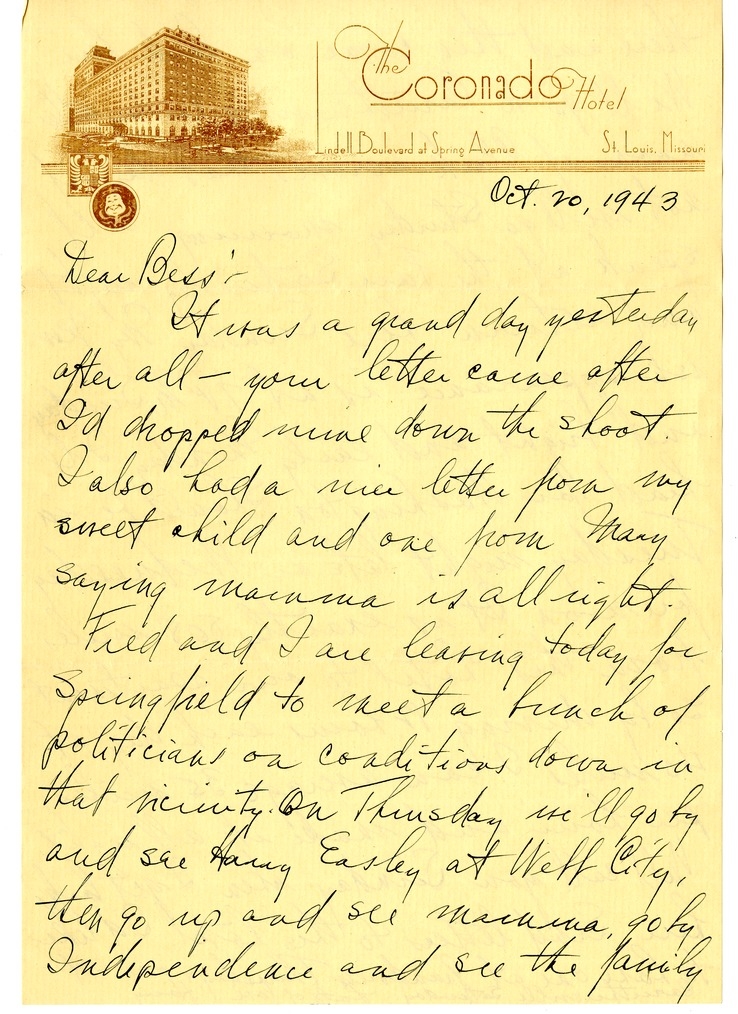 The Coronado Hotel
Lindell Boulevard at Spring Avenue St. Louis, Missouri
Oct. 20, 1943
Dear Bess:-
It was a grand day yesterday
after all — your letter came after
I'd dropped mine down the shoot.
I also had a nice letter from my
sweet child and one from Mary
saying mamma is all right.
Fred and I are leaving today for
Springfield to meet a bunch of
politicians on conditions down in
that vicinity. On Thursday we'll go by
and see Harry Easley at Webb City,
then go up and see mamma, go by
Independence and see the family